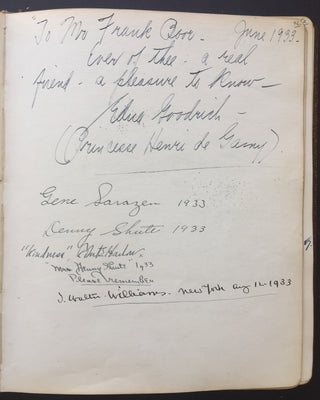 To Mr Frank Boor. June 1933.
Ever of thee - a real
friend - a pleasure to know -
Edna Goodrich -
(Princesse Henri de
Gene Sarazen 1933
Denny Shute 1933
"Kindness"
"Mrs Henny Shute" 1933
Please remember
J. Walter Williams. New York Aug 12-1933